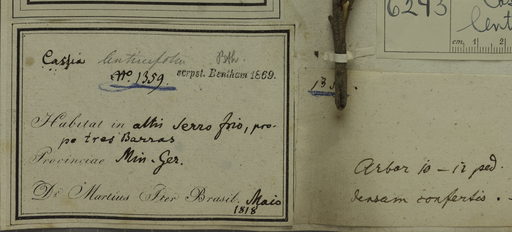 Cassia lenticifolia Bth
No. 1359. scrpst. Bentham 1869.
Habitat in altis Serro frio, pro-
pe tres Barras
Provinciae Min. Ger.
Dr. Martius Iter Brasil. Maio
1818
6293
cm 1 2
Arbor 10 - 12 ped.
densam confertis.